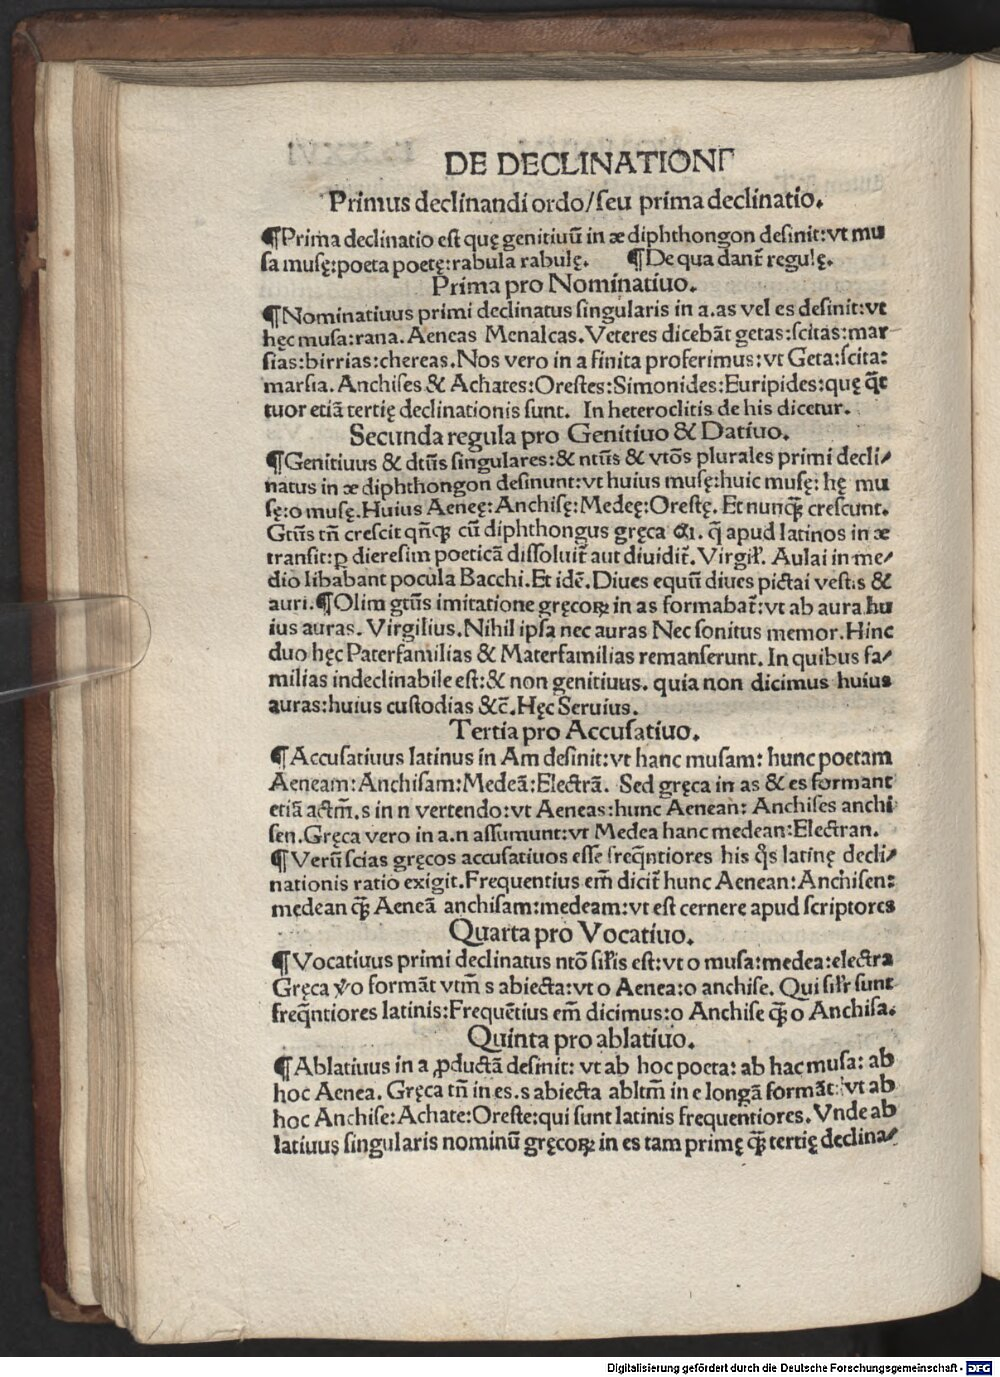 DE DECLINATIONE
Primus declinandi ordo/seu prima declinatio.
¶Prima declinatio est quę genitiuū in æ diphthongon desinit:vt mu
sa musę:poeta poetę:rabula rabulę. ¶De qua danť regulę.
Prima pro Nominatiuo.
¶Nominatiuus primi declinatus singularis in a.as vel es desinit:vt
hęc musa:rana. Aeneas Menalcas. Veteres dicebāt getas:scitas:mar
sias:birrias:chereas. Nos vero in a finita proferimus:vt Geta:scita:
marsia. Anchises & Achates:Orestes:Simonides:Euripides:quę q̄t
tuor etiā tertię declinationis sunt. In heteroclitis de his dicetur.
Secunda regula pro Genitiuo & Datiuo.
¶Genitiuus & dtiūs singulares:& ntiūs & vtōs plurales primi decli/
natus in æ diphthongon desinunt:vt huius musę:huic musę: hę mu
sę:o musę. Huius Aeneę: Anchisę: Medeę: Orestę. Et nunꝙ̄ crescunt.
Gtiūs tn̄ crescit qn̄qꝫ cū diphthongus gręca αι. q̄ apud latinos in æ
transit:ꝑ dieresim poeticā dissoluiť aut diuidiť. Virgil̛. Aulai in me/
dio libabant pocula Bacchi. Et idē. Diues equū diues pictai vestis &
auri. ¶Olim gtiūs imitatione gręcoꝝ in as formabať:vt ab aura hu
ius auras. Virgilius. Nihil ipsa nec auras Nec sonitus memor. Hinc
duo hęc Paterfamilias & Materfamilias remanserunt. In quibus fa/
milias indeclinabile est:& non genitiuus. quia non dicimus huius
auras:huius custodias &c̄. Hęc Seruius.
Tertia pro Accusatiuo.
¶Accusatiuus latinus in Am desinit:vt hanc musam: hunc poetam
Aeneam: Anchisam: Medeā: Electrā. Sed gręca in as & es formant
etiā actm̄. s in n vertendo:vt Aeneas:hunc Aenean: Anchises anchi
sen. Gręca vero in a.n assumunt:vt Medea hanc medean:Electran.
¶Verū scias gręcos accusatiuos esse freq̄ntiores his q̇s latinę decli/
nationis ratio exigit. Frequentius em̄ diciť hunc Aenean: Anchisen:
medean ꝙ̄ Aeneā anchisam:medeam:vt est cernere apud scriptores
Quarta pro Vocatiuo.
¶Vocatiuus primi declinatus ntō sil̛is est:vt o musa:medea:electra
Gręca v̊o formāt vtm̄ s abiecta:vt o Aenea:o anchise. Qui sil̛r sunt
freq̄ntiores latinis:Frequētius em̄ dicimus:o Anchise ꝙ̄ o Anchisa.
Quinta pro ablatiuo.
¶Ablatiuus in a ꝓductā desinit: vt ab hoc poeta: ab hac musa: ab
hoc Aenea. Gręca tn̄ in es.s abiecta abltm̄ in e longā formāt: vt ab
hoc Anchise: Achate: Oreste:qui sunt latinis frequentiores. Vnde ab
latiuus singularis nominū gręcoꝝ in es tam primę ꝙ̄ tertię declina/
Digitalisierung gefördert durch die Deutsche Forschungsgemeinschaft - DFG